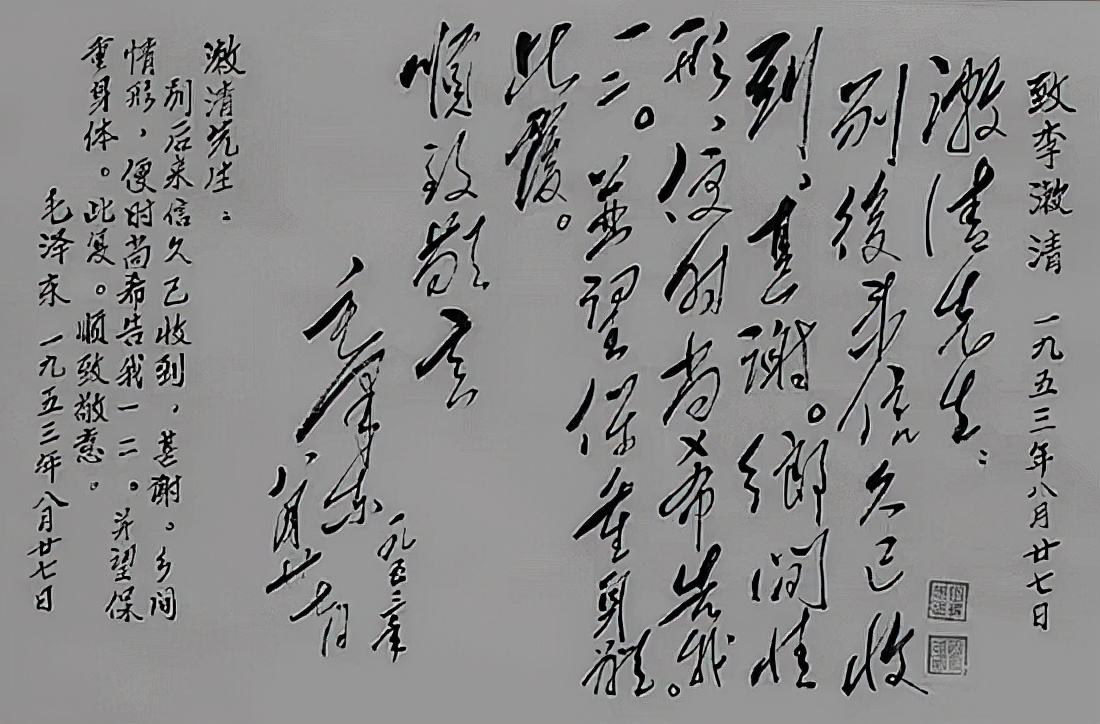 致李漱清 一九五三年八月廿七日
漱清先生：
别後来信久已收
到，甚谢。鄉间情
形，便时尚希告我
一二。並望保重身體。
此覆。
順致敬意
毛泽东
一九五三年
八月廿七日
漱清先生：
别后来信久已收到，甚谢。乡间
情形，便时尚希告我一二。并望保
重身体。此复。顺致敬意。
毛泽东 一九五三年八月廿七日